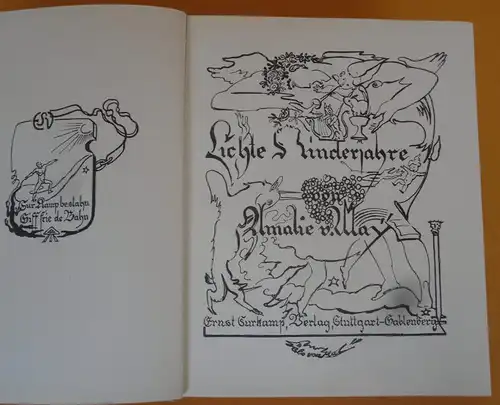 Tur-Kamp bestahn
Giff frie de Bahn
Lichte Kinderjahre
von
Amalie v. May
Ernst Turkamp, Verlag, Stuttgart-Gablenberg